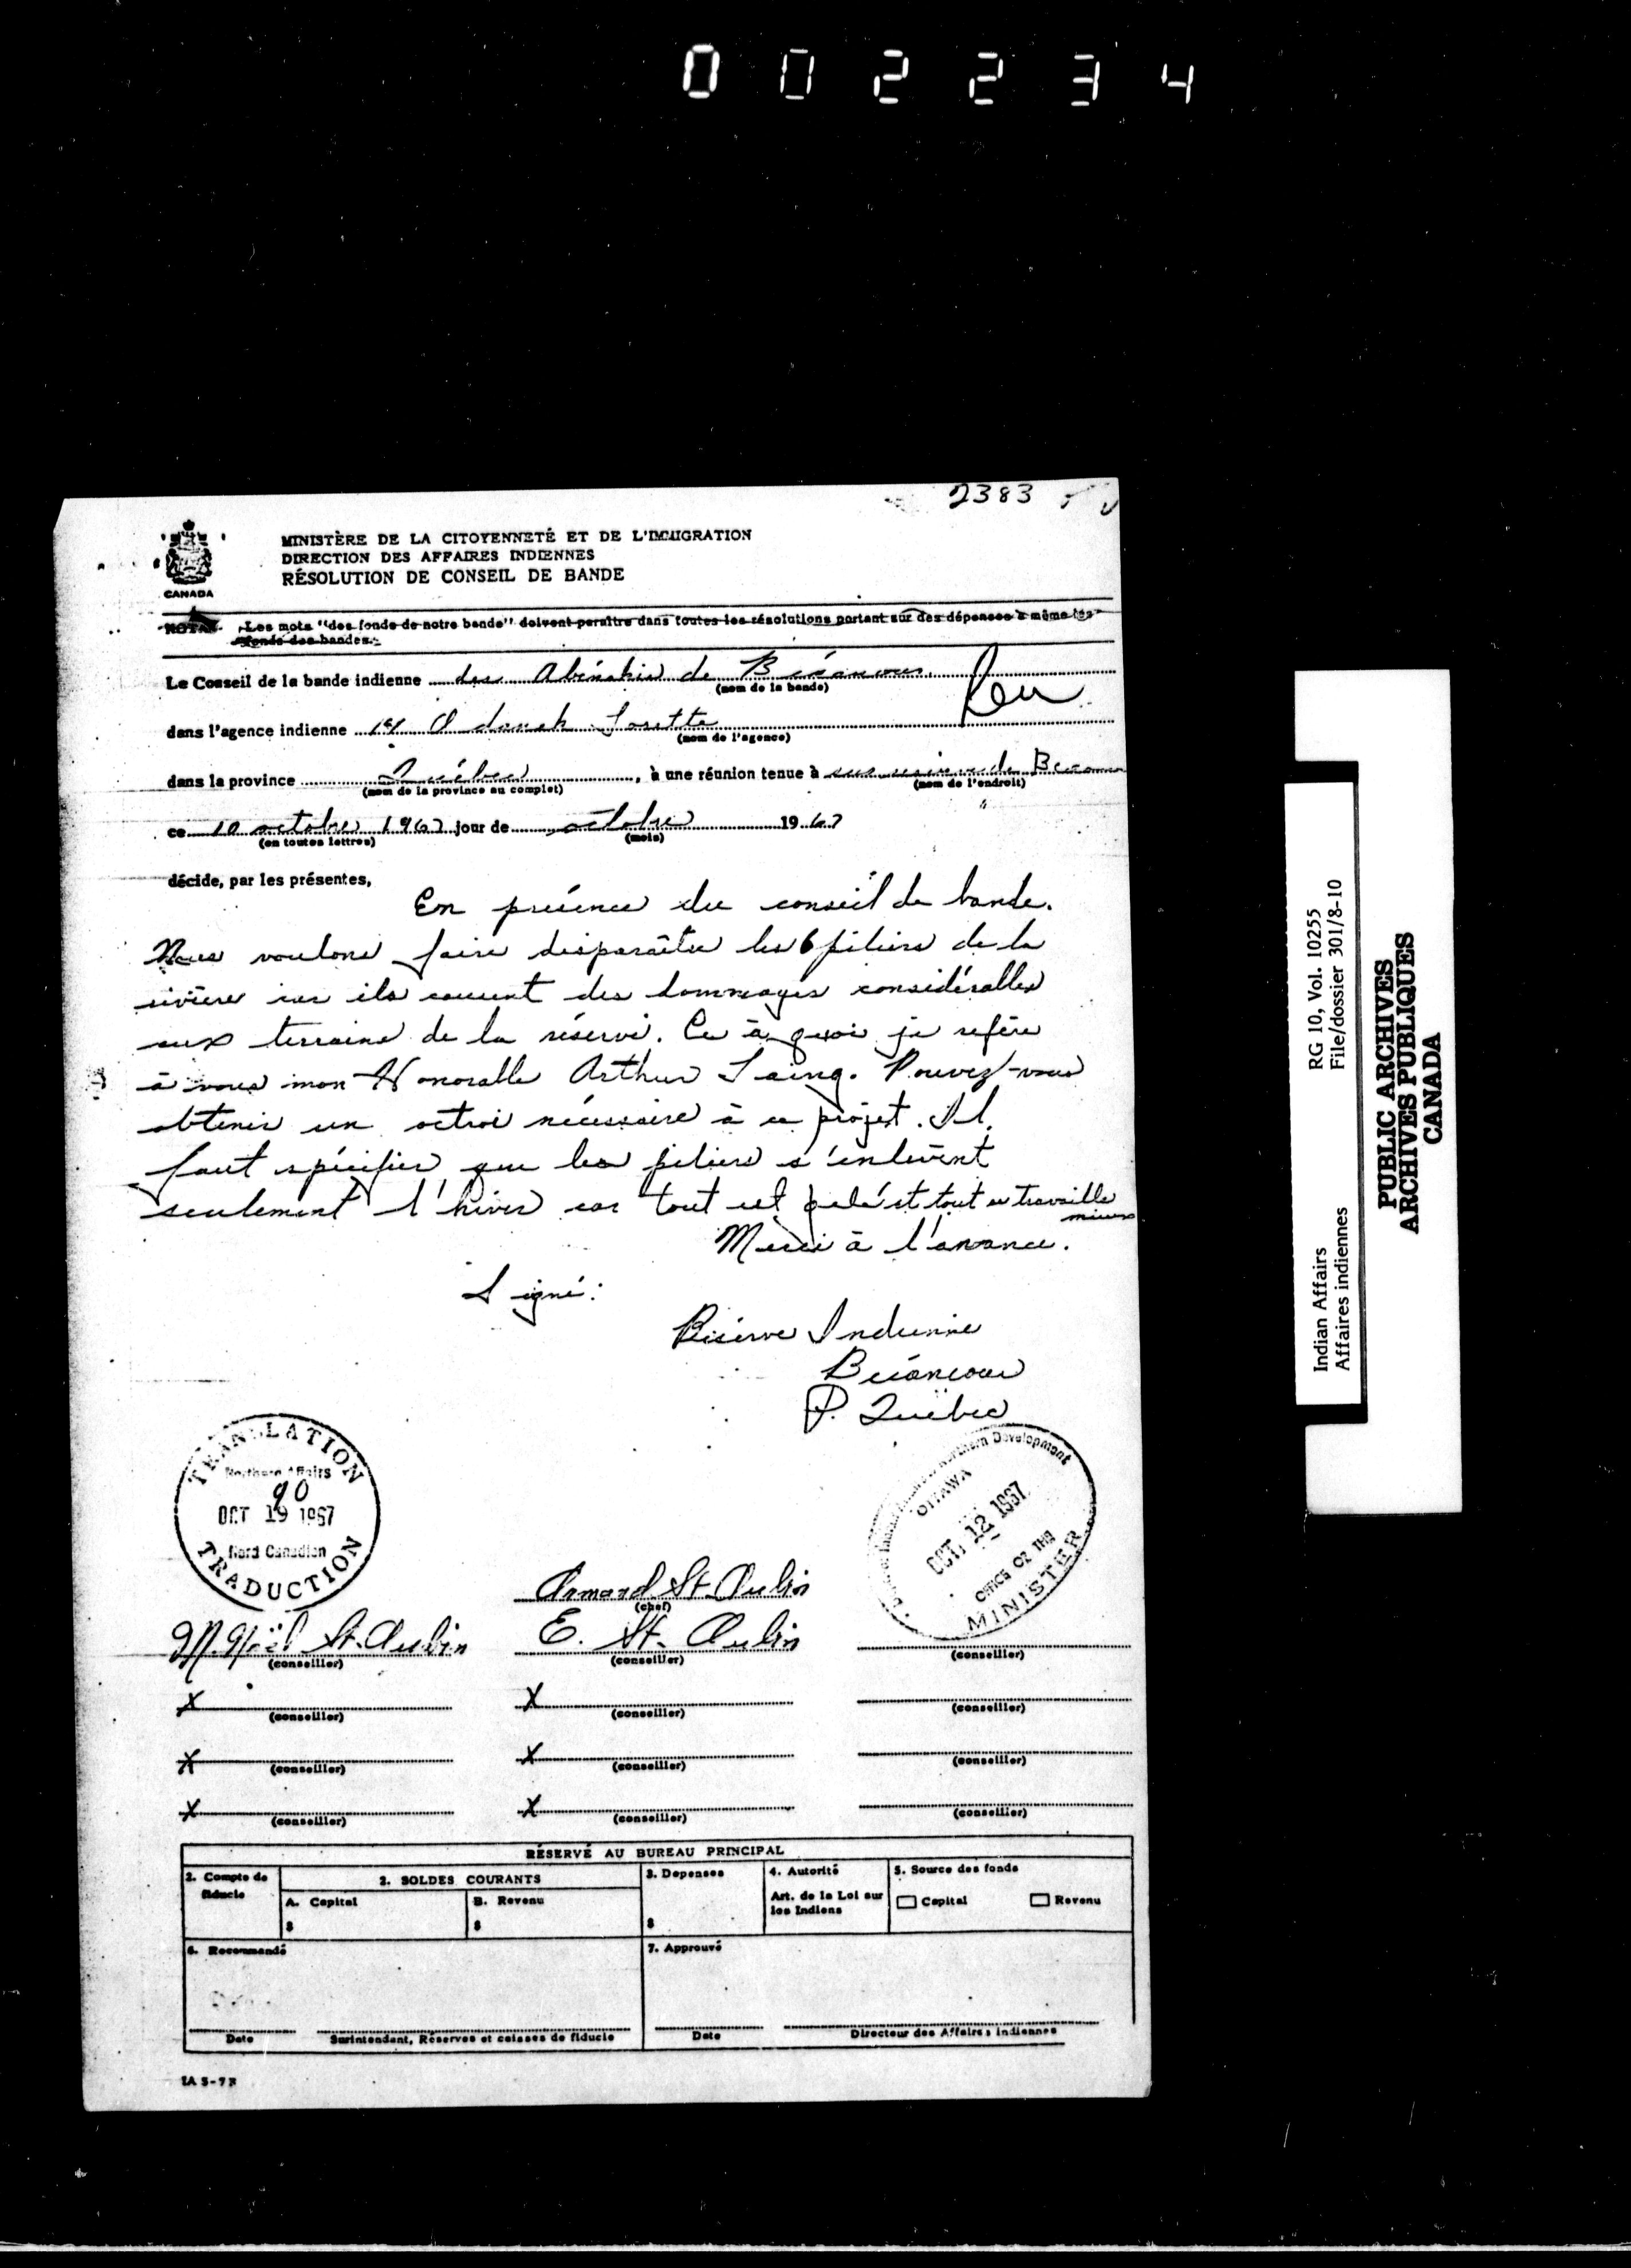 002234
2383
MINISTÈRE DE LA CITOYENNETÉ ET DE L'IMMIGRATION
DIRECTION DES AFFAIRES INDIENNES
RÉSOLUTION DE CONSEIL DE BANDE
CANADA
NOTA. Les mots "des fonds de notre bande" doivent paraître dans toutes les résolutions portant sur des dépenses à même les
fonds des bandes.
Le Conseil de la bande indienne des Abénakis de Bécancour
(nom de la bande)
dans l'agence indienne Odanak Lorette
(nom de l'agence)
dans la province Québec, à une réunion tenue à de Becancour
(nom de la province au complet) (nom de l'endroit)
ce 10 octobre 1967 jour de octobre 1967
(en toutes lettres) (mois)
décide, par les présentes,
En présence du conseil de bande.
Nous voulons faire disparaître les 6 piliers de la
rivière car ils causent des dommages considérables
aux terrains de la réserve. Ce à quoi je refère
à vous mon Honorable Arthur Laing. Pouvez-vous
obtenir un octroi nécessaire à ce projet. Il
faut spécifier que les piliers s'enlèvent
seulement l'hiver car tout est gelé et tout se travaille
mieux
Merci à l'avance.
Signé:
Réserve Indienne
Bécancour
P. Québec
TRANSLATION
Northern Affairs
90
OCT 19 1967
Nord Canadien
TRADUCTION
Northern Development
OTTAWA
OCT 12 1967
OFFICE OF THE
MINISTER
Armand St. Aubin
(chef)
M. Noël St. Aubin E. St. Aubin
(conseiller) (conseiller) (conseiller)
X X
(conseiller) (conseiller) (conseiller)
X X
(conseiller) (conseiller) (conseiller)
X X
(conseiller) (conseiller) (conseiller)
RÉSERVÉ AU BUREAU PRINCIPAL
1. Compte de fiducie
2. SOLDES COURANTS
A. Capital
$
B. Revenu
$
3. Dépenses
$
4. Autorité
Art. de la Loi sur
les Indiens
5. Source des fonds
Capital Revenu
6. Recommandé
7. Approuvé
Date Surintendant, Réserves et caisses de fiducie Date Directeur des Affaires indiennes
IA 5-7F
Indian Affairs RG 10, Vol. 10255
Affaires indiennes File/dossier 301/8-10
PUBLIC ARCHIVES
ARCHIVES PUBLIQUES
CANADA